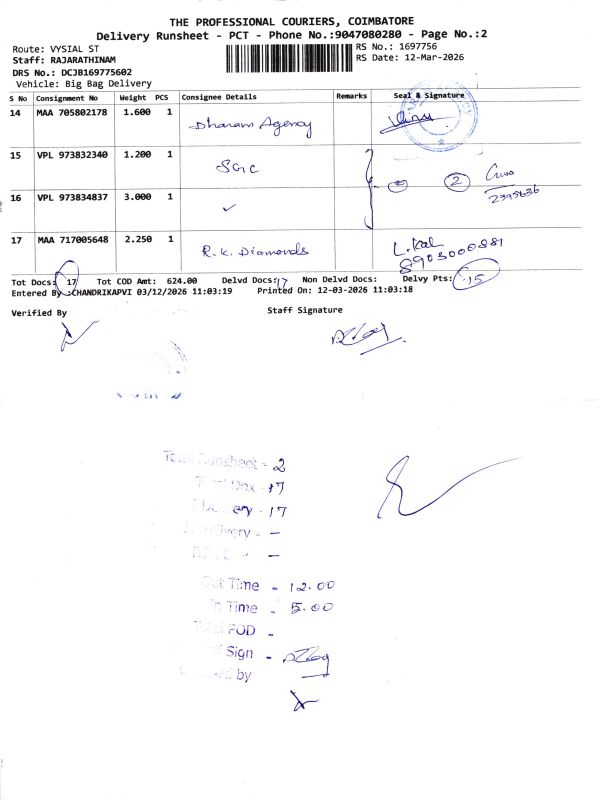 THE PROFESSIONAL COURIERS, COIMBATORE
Delivery Runsheet - PCT - Phone No.:9047080280 - Page No.:2
Route: VYSIAL ST
RS No.: 1697756
Staff: RAJARATHINAM
RS Date: 12-Mar-2026
DRS No.: DCJB169775602
Vehicle: Big Bag Delivery
S No Consignment No Weight PCS Consignee Details Remarks Seal & Signature
14 MAA 705802178 1.600 1 Dharam Agency
15 VPL 973832340 1.200 1 SGC
2
16 VPL 973834837 3.000 1 ✓
17 MAA 717005648 2.250 1 R.K. Diamonds L.Kal
8903000881
Tot Docs: 17 Tot COD Amt: 624.00 Delvd Docs: 17 Non Delvd Docs: Delvy Pts: 15
Entered By :CHANDRIKAPVI 03/12/2026 11:03:19 Printed On: 12-03-2026 11:03:18
Verified By Staff Signature
Total Runsheet - 2
- 17
Delivery - 17
Delivery - -
- -
Out Time - 12.00
In Time - 5.00
Total POD -
Sign -
by